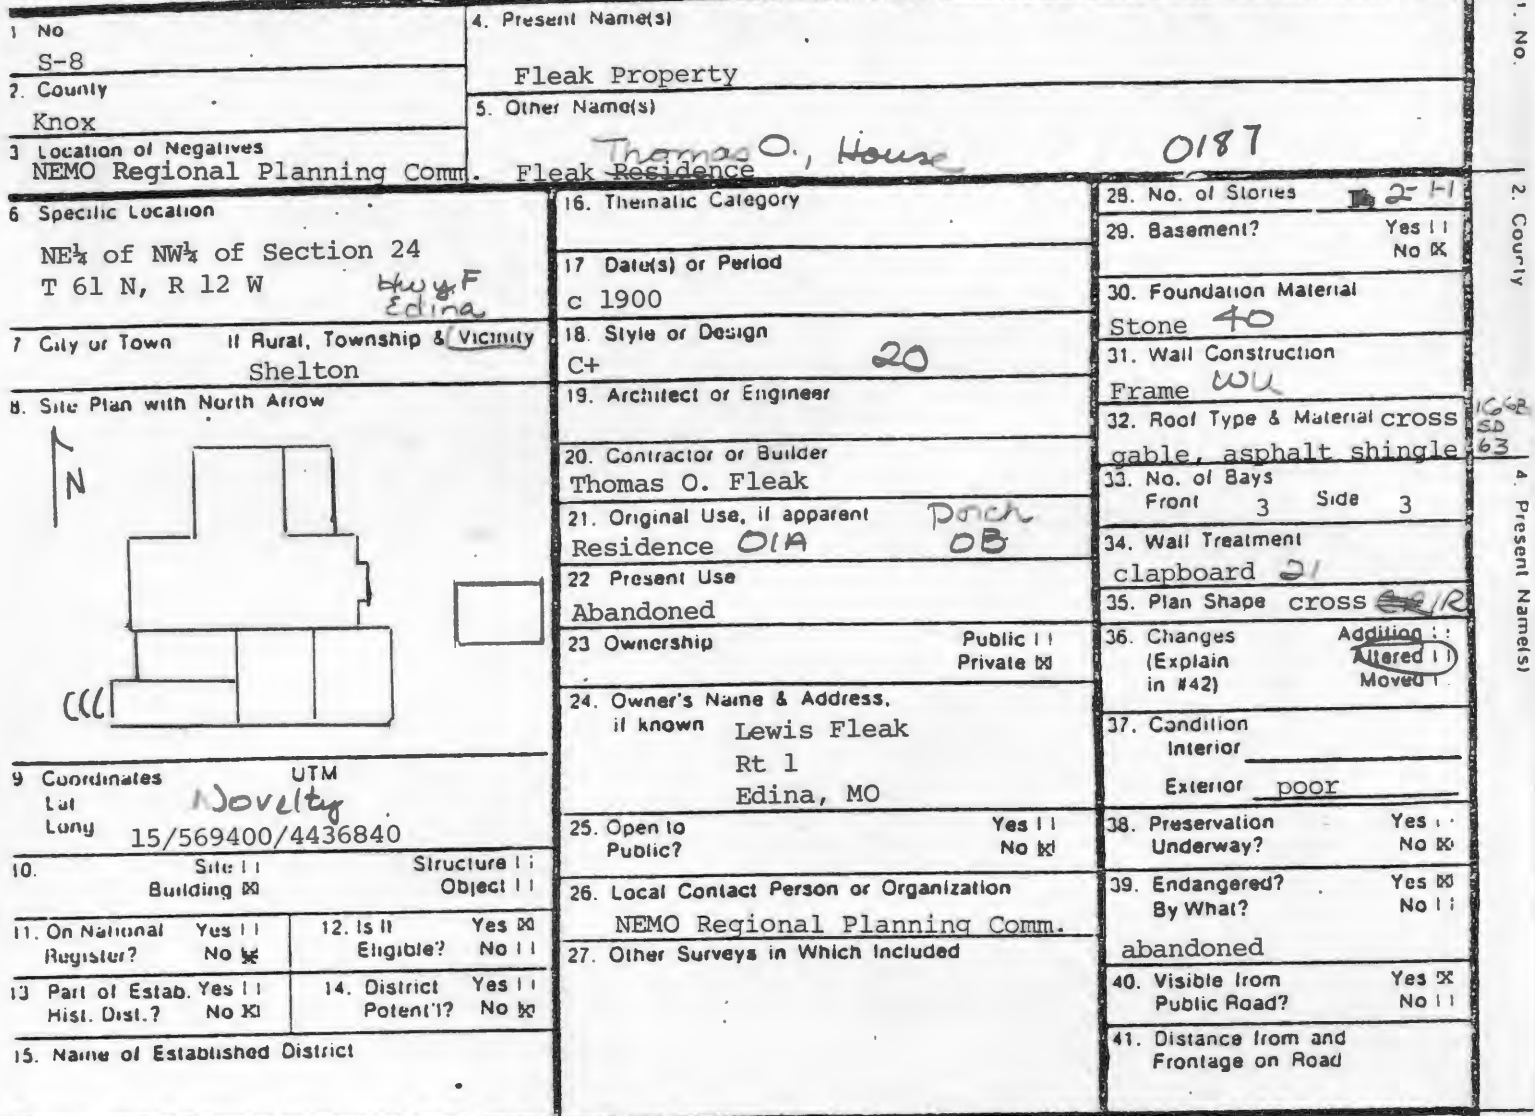 1 No
S-8
2. County
Knox
3 Location of Negatives
NEMO Regional Planning Comm.
4. Present Name(s)
Fleak Property
5. Other Name(s)
Thomas O., House 0187
Fleak Residence
6 Specific Location
NE¼ of NW¼ of Section 24
T 61 N, R 12 W
Hwy F
Edina
7 City or Town If Rural, Township & Vicinity
Shelton
8. Site Plan with North Arrow
N
9 Coordinates UTM
Lat Novelty
Long 15/569400/4436840
10. Site Structure
Building ☒ Object
11. On National Register? Yes No ☒
12. Is It Eligible? Yes ☒ No
13 Part of Estab. Hist. Dist.? Yes No ☒
14. District Potent'l? Yes No ☒
15. Name of Established District
16. Thematic Category
17 Date(s) or Period
c 1900
18. Style or Design
C+ 20
19. Architect or Engineer
20. Contractor or Builder
Thomas O. Fleak
21. Original Use, if apparent Porch
Residence 01A OB
22 Present Use
Abandoned
23 Ownership Public
Private ☒
24. Owner's Name & Address,
if known Lewis Fleak
Rt 1
Edina, MO
25. Open to Yes
Public? No ☒
26. Local Contact Person or Organization
NEMO Regional Planning Comm.
27. Other Surveys in Which Included
28. No. of Stories 2-
29. Basement? Yes
No ☒
30. Foundation Material
Stone 40
31. Wall Construction
Frame WU
32. Roof Type & Material cross
gable, asphalt shingle
SD
63
33. No. of Bays
Front 3 Side 3
34. Wall Treatment
clapboard 21
35. Plan Shape cross IR
36. Changes Addition
(Explain Altered
in #42) Moved
37. Condition
Interior
Exterior poor
38. Preservation Yes
Underway? No ☒
39. Endangered? Yes ☒
By What? No
abandoned
40. Visible from Yes ☒
Public Road? No
41. Distance from and
Frontage on Road
1. No.
2. County
4. Present Name(s)